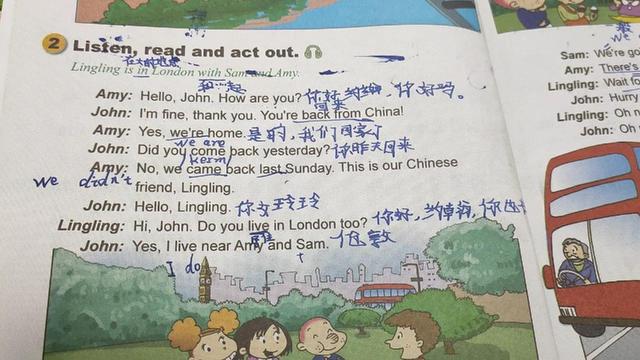 2 Listen, read and act out.
Lingling is in London with Sam and Amy.
Amy: Hello, John. How are you? 你好 约翰，你好吗。
回来
John: I'm fine, thank you. You're back from China!
Amy: Yes, we're home. 是的，我们回家了
we are
John: Did you come back yesterday? 你昨天回来
Amy: No, we came back last Sunday. This is our Chinese
we didn't friend, Lingling.
John: Hello, Lingling. 你好玲玲
Lingling: Hi, John. Do you live in London too? 你好，约翰，你也
John: Yes, I live near Amy and Sam.
I do
We're go
Sam: We're go
Amy: There's
Lingling: Wait fo
John: Hurry
Lingling: Oh n
John: Oh